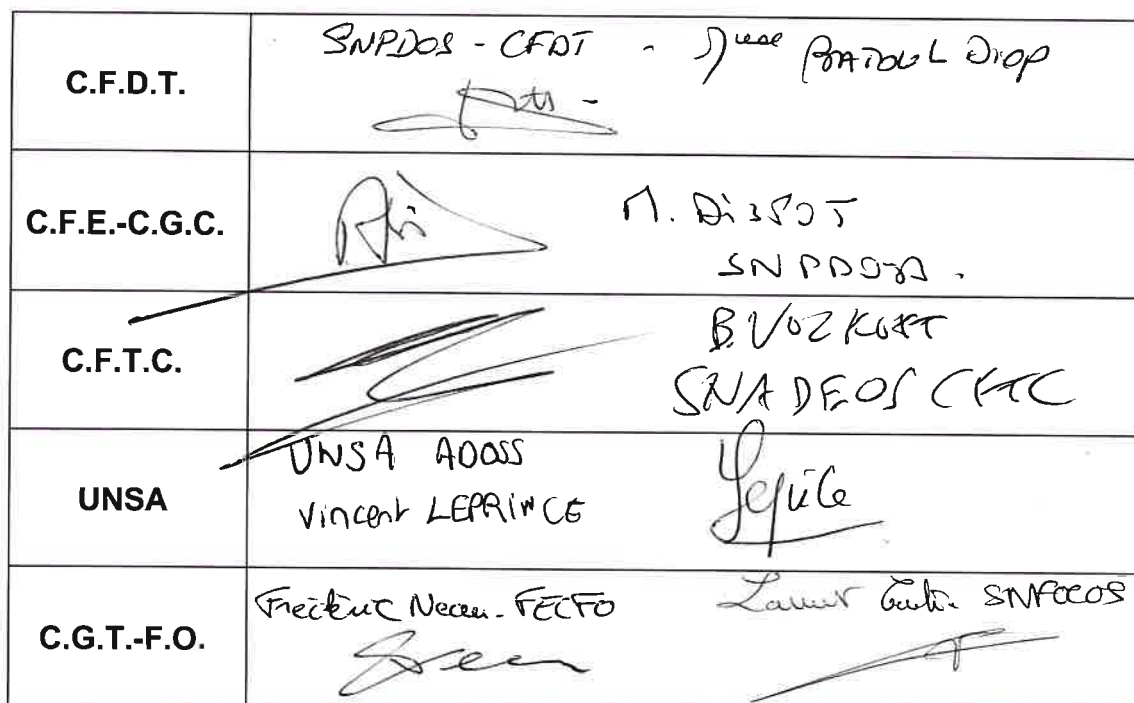 C.F.D.T.
SNPDOS - CFDT - BATOUL DIOP
C.F.E.-C.G.C.
M. DISSOT
C.F.T.C.
B. VOZKORT
SNADEOS CFTC
UNSA
UNSA ADOSS
Vincent LEPRINCE
C.G.T.-F.O.
Frédéric Neau - FECFO
SNFOCOS